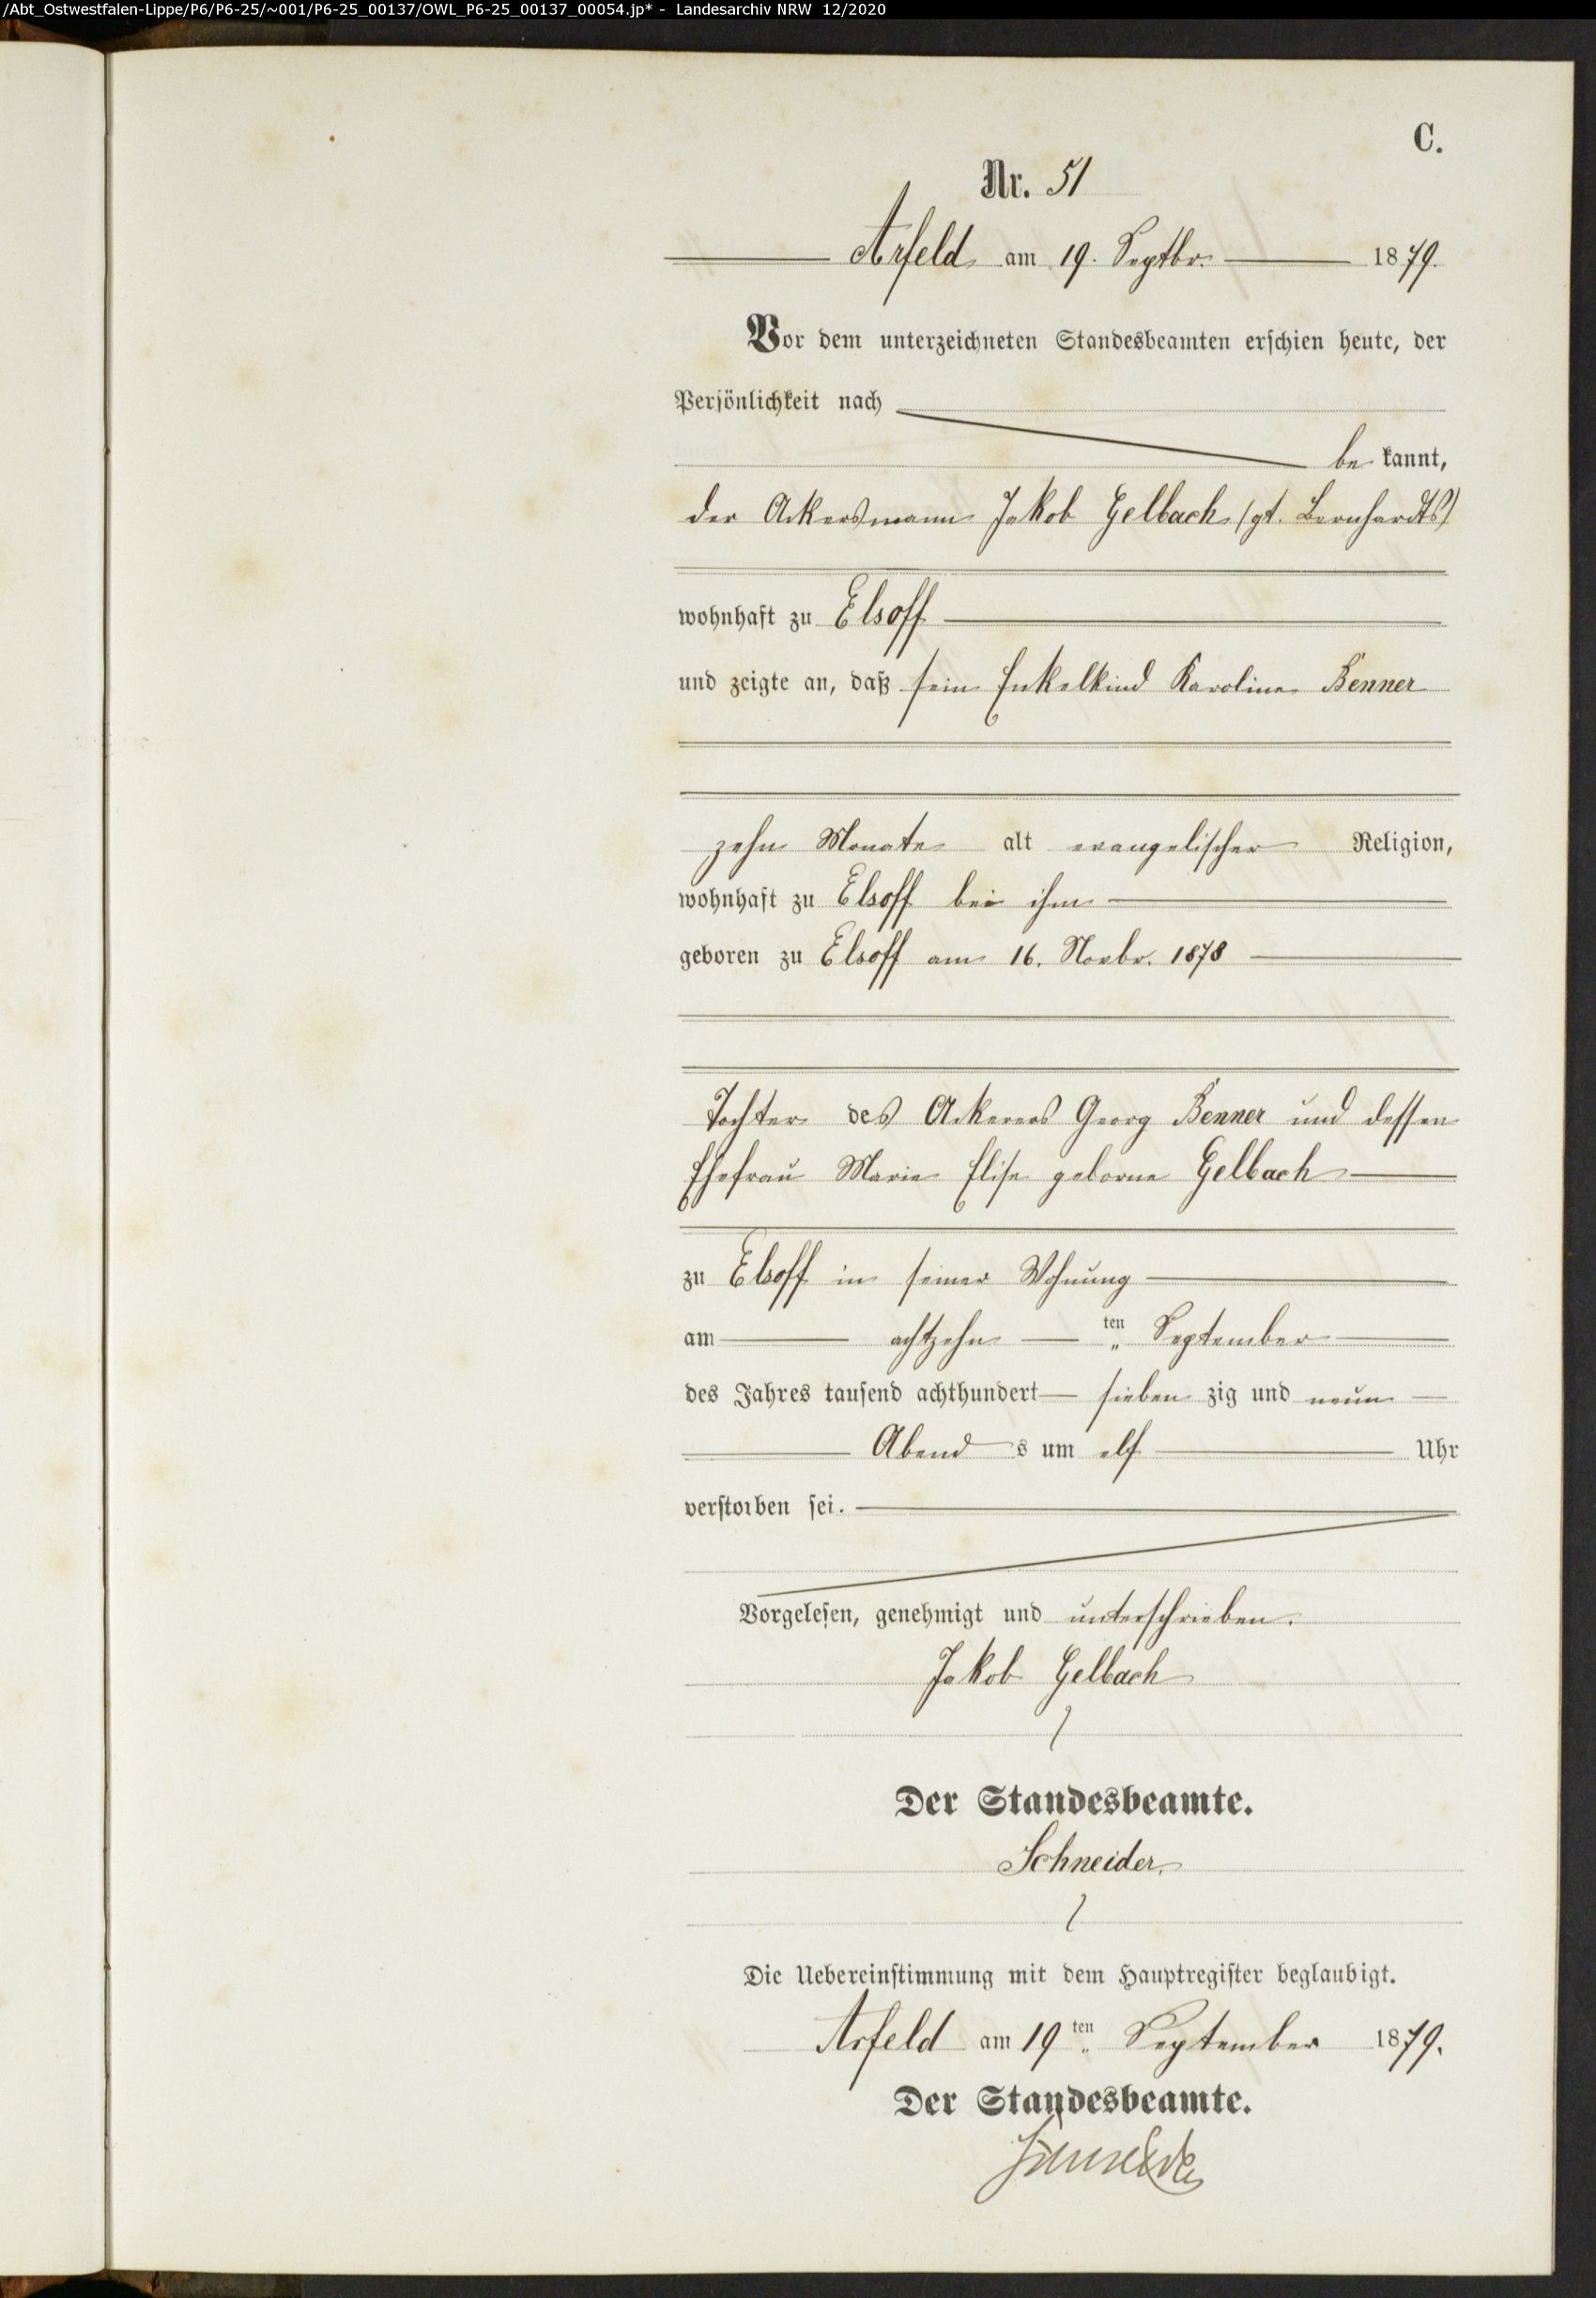 /Abt_Ostwestfalen-Lippe/P6/P6-25/~001/P6-25_00137/OWL_P6-25_00137_00054.jp* - Landesarchiv NRW 12/2020
C.
Nr. 51
Arfeld am 19. Septbr. 1879.
Vor dem unterzeichneten Standesbeamten erschien heute, der
Persönlichkeit nach
be kannt,
der Ackersmann Jakob Gelbach (gt. Bernhardts)
wohnhaft zu Elsoff
und zeigte an, daß sein Enkelkind Karoline Benner
zehn Monate alt evangelischer Religion,
wohnhaft zu Elsoff bei ihm
geboren zu Elsoff am 16. Novbr. 1878
Tochter des Ackerers Georg Benner und dessen
Ehefrau Marie Elise geborne Gelbach
zu Elsoff in seiner Wohnung
am achtzehn ten September
des Jahres tausend achthundert sieben zig und neun
Abend s um elf Uhr
verstorben sei.
Vorgelesen, genehmigt und unterschrieben.
Jakob Gelbach
Der Standesbeamte.
Schneider.
Die Uebereinstimmung mit dem Hauptregister beglaubigt.
Arfeld am 19 ten September 1879.
Der Standesbeamte.
Schneider